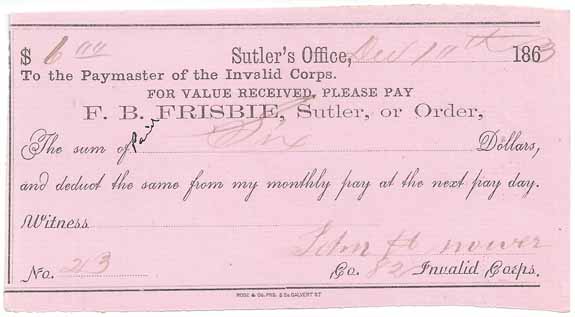 $ 6 00 Sutler's Office, Dec 10th 1863
To the Paymaster of the Invalid Corps.
FOR VALUE RECEIVED, PLEASE PAY
F. B. FRISBIE, Sutler, or Order,
The sum of Paid Six Dollars,
and deduct the same from my monthly pay at the next pay day.
Witness
John H
No. 23 Co. 82 Invalid Corps.